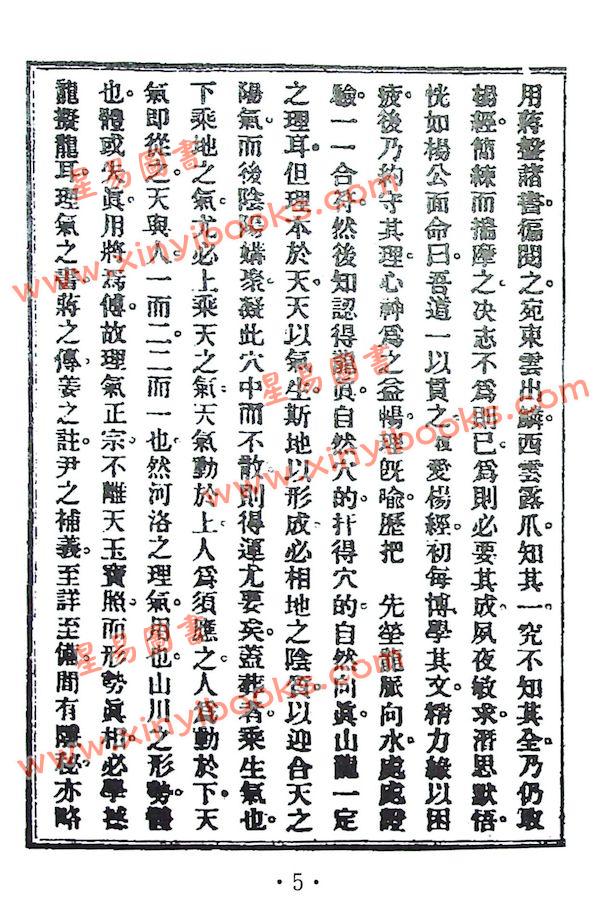 用蔣盤諸書徧閱之宛東雲出鱗西雲露爪知其一究不知其全乃仍取
楊經簡練而揣摩之决志不爲則已爲則必要其成夙夜敏求潛思默悟
恍如楊公面命曰吾道一以貫之復愛楊經初每博學其文精力緣以困
疲後乃約守其理心神爲之益暢理旣喻歷把 先塋龍脈向水處處證
驗一一合符然後知認得龍眞自然穴的扦得穴的自然向眞山龍一定
之理耳但理本於天天以氣生斯地以形成必相地之陰質以迎合天之
陽氣而後陰陽媾聚凝此穴中而不散則得運尤要矣蓋葬者乘生氣也
下乘地之氣尤必上乘天之氣天氣動於上人爲須應之人爲動於下天
氣即從之天與人一而二二而一也然河洛之理氣用也山川之形勢體
也體或失眞用將焉傅故理氣正宗不離天玉寶照而形勢眞相必學撼
龍擬龍耳理氣之書蔣之傳姜之註尹之補義至詳至備間有隱秘亦略
星易圖書
www.xinyibooks.com
星易圖書
www.xinyibooks.com
星易圖書
www.xinyibooks.com
·5·